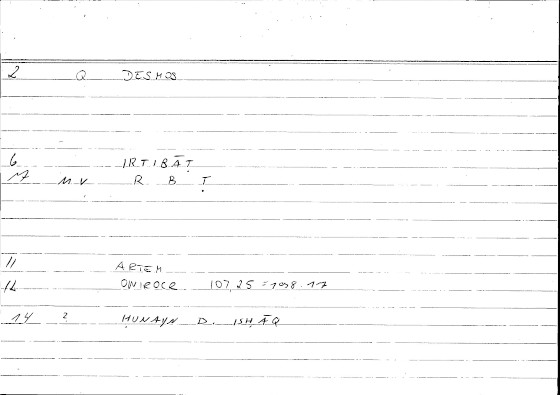 2 Q DESMOS
6 IRTIBĀṬ
17 M V R B Ṭ
11 ARTEM
12 ONIROCR 107,25 = 198.17
14 2 ḤUNAYN D. ISḤĀQ